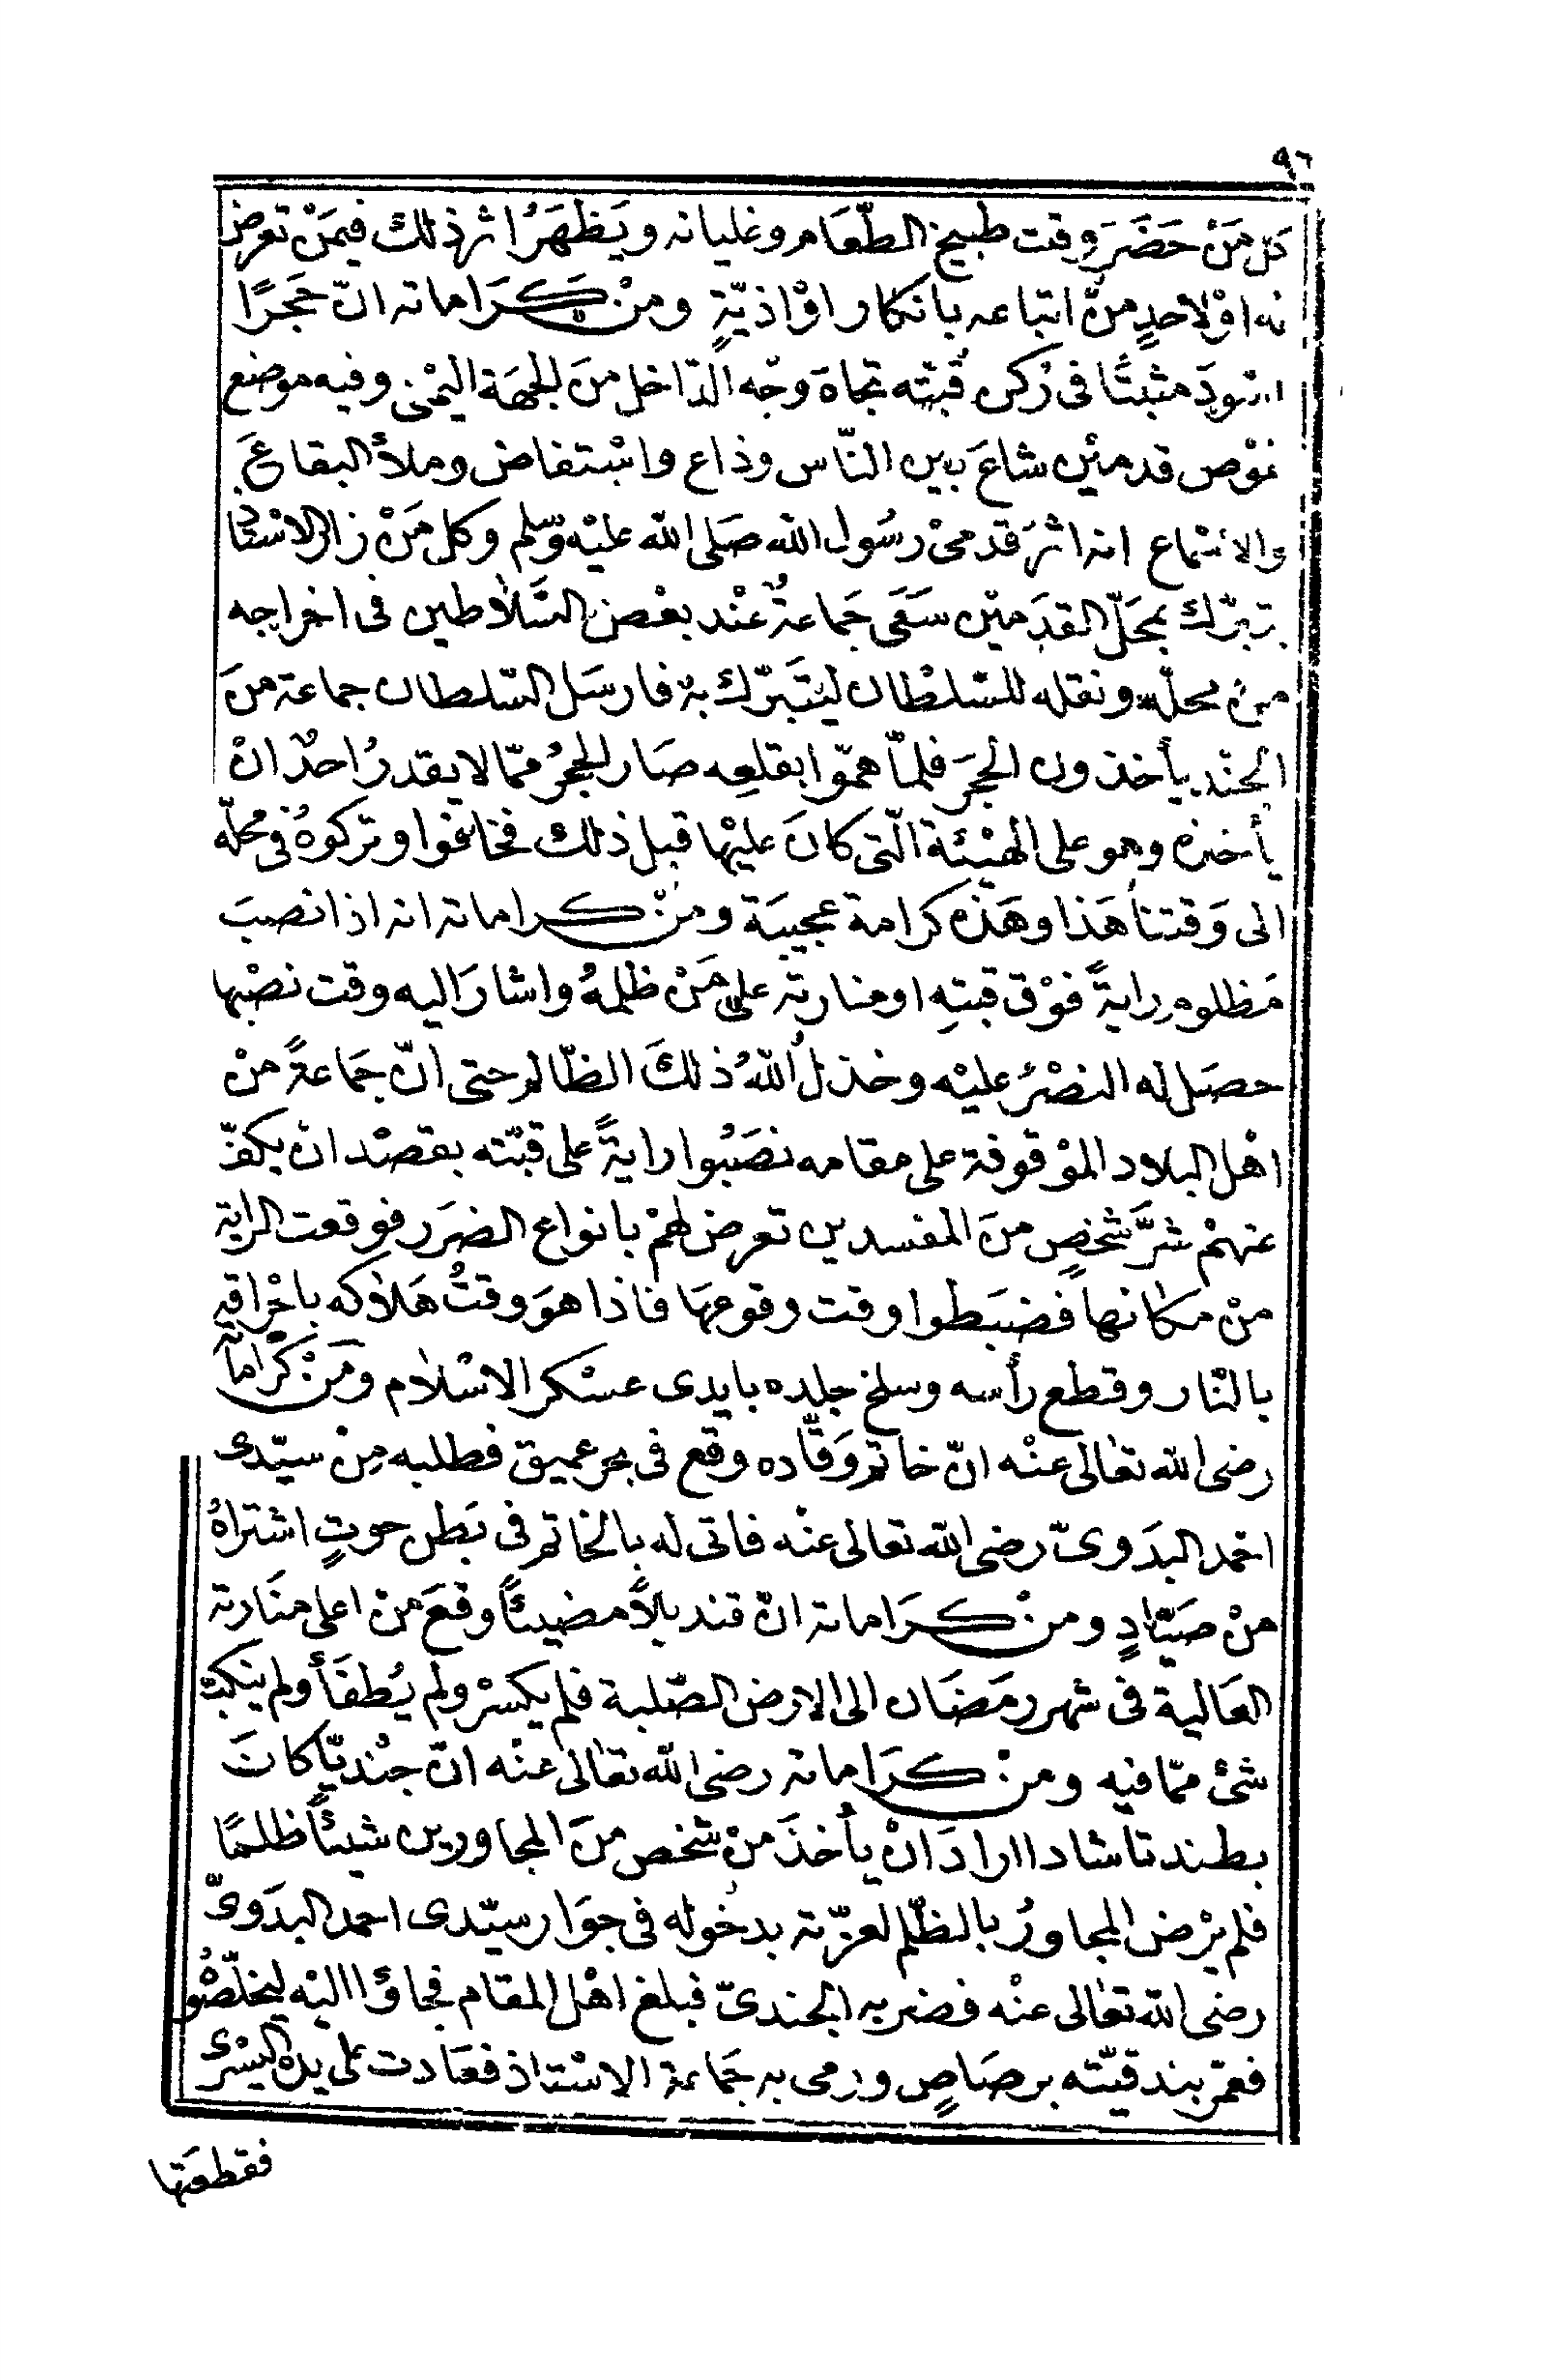 ٩٦
كل مَنْ حَضَرَ وقت طبيخ الطّعَام وغليانه ويَظهَرُ اثر ذلك فيمَنْ تعرض
له اوْ لاحدٍ منْ اتباعه بانكار اوْ اذيّةٍ ومنْ كَرَاماته انّ حَجرًا
اسْودَ مثبتًا فى رُكن قُبّته تجاهَ وجْه الدّاخل منَ الجهَة اليمْنى وفيه موضع
غوْص قدميْن شاعَ بين النّاس وذاع واسْتفاض وملأ البقاعَ
والاسْماع انه اثرَ قدمىْ رسُول الله صَلى الله عليْه وسلم وكل مَنْ زار الاسْتاذ
يتبرّك بمحَلّ القدَميْن سَعَى جَماعةٌ عنْد بعْض السّلاطين فى اخراجه
منْ محلّه ونقله للسّلطان ليَتَبرّك به فارسَل السّلطان جماعة منَ
الجنْد يأخذون الحجَرَ فلمّا همّوا بقلعِه صَار الحجرُ ممّا لا يقدرُ احدٌ انْ
يأخذه وهو على الهيْئة الّتى كانَ عليْها قبل ذلك فخافوا وتركوهُ فى محلّه
الى وَقتنا هَذا وهَذه كرامة عجيبَة ومنْ كراماته انه اذا نصبَ
مَظلوم رايةً فوْق قبتهِ او منارته على مَنْ ظلمهُ واشارَ اليه وقت نصْبها
حصَل له النصْرُ عليْه وخذلُ اللهُ ذلكَ الظّالم حتى انّ جَماعةً منْ
اهْل البلاد الموْقوفة على مقامه نصَبُوا رايةً على قبّته بقصْد انْ يكفّ
عنهمْ شرَّ شخصٍ منَ المفسدين تعرض لهمْ بانواع الضرَر فوقعت الراية
منْ مكانها فضبَطوا وقت وقوعهَا فاذا هوَ وقتُ هَلاكه باحْراقه
بالنّار وقطع رأسه وسلخ جلده بايدى عسْكر الاسْلام ومَنْ كَرْاماته
رضى الله تعَالى عنْه انّ خاتم وَقّاده وقع فى بحر عميق فطلبه مِنْ سيّدى
احْمد البدَوىّ رضى الله تعالى عنْه فاتى له بالخاتم فى بَطن حوتٍ اشتراهُ
منْ صَيّادٍ ومنْ كَرَاماته انّ قنديلاً مضيئاً وقعَ منْ اعلى منَارته
العَالية فى شهر رمَضَان الى الارض الصّلبة فلم يكسْر ولم يُطفَأ ولم ينكبّ
شئ ممّا فيه ومنْ كَرَاماته رضى الله تعَالى عنْه انّ جنْديّا كانَ
بطندتا شادا ارادَ انْ يأخذَ منْ شخص منَ المجاورين شيئاً ظلمًا
فلم يرْض المجاورُ بالظلْم لعزّته بدخوله فى جوَار سيّدى احمد البدَوىّ
رضى الله تعَالى عنْه فضربه الجندىّ فبلغ اهْل المقام فجاؤا اليْه ليخلّصُوْ
فعمّر بندقيّته برصَاصٍ ورمى به جَماعة الاسْتاذ فعَادت على يده اليسْرى
فقطعَتها